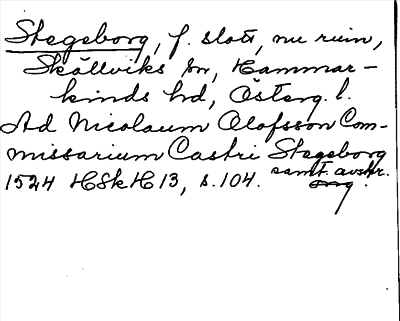 Stegeborg, f. slott, nu ruin,
Skällviks sn, Hammar-
kinds hd, Österg. l.
Ad Nicolaum Olofsson Com-
missarium Castri Stegeborg
1524 HSkH 13, s. 104. samt. avskr.